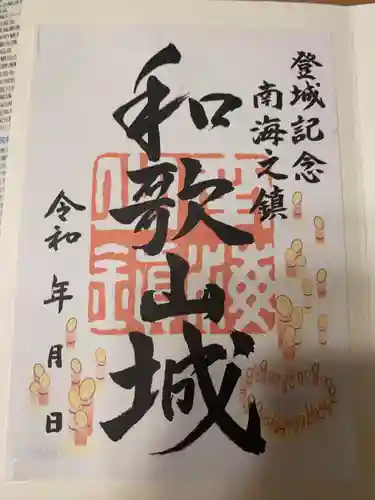 登城記念
南海之鎮
和歌山城
令和 年 月 日